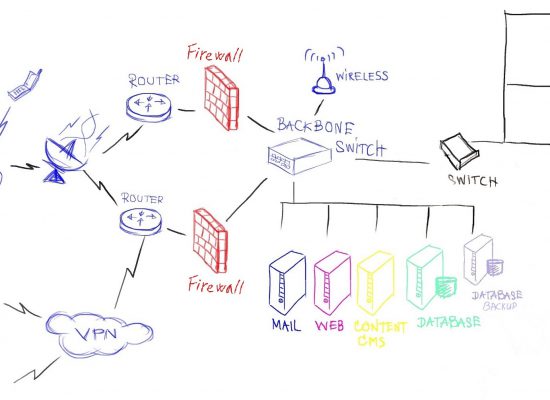 Firewall
ROUTER
WIRELESS
BACKBONE
SWITCH
SWITCH
ROUTER
Firewall
VPN
MAIL
WEB
CONTENT
CMS
DATABASE
DATABASE
BACKUP